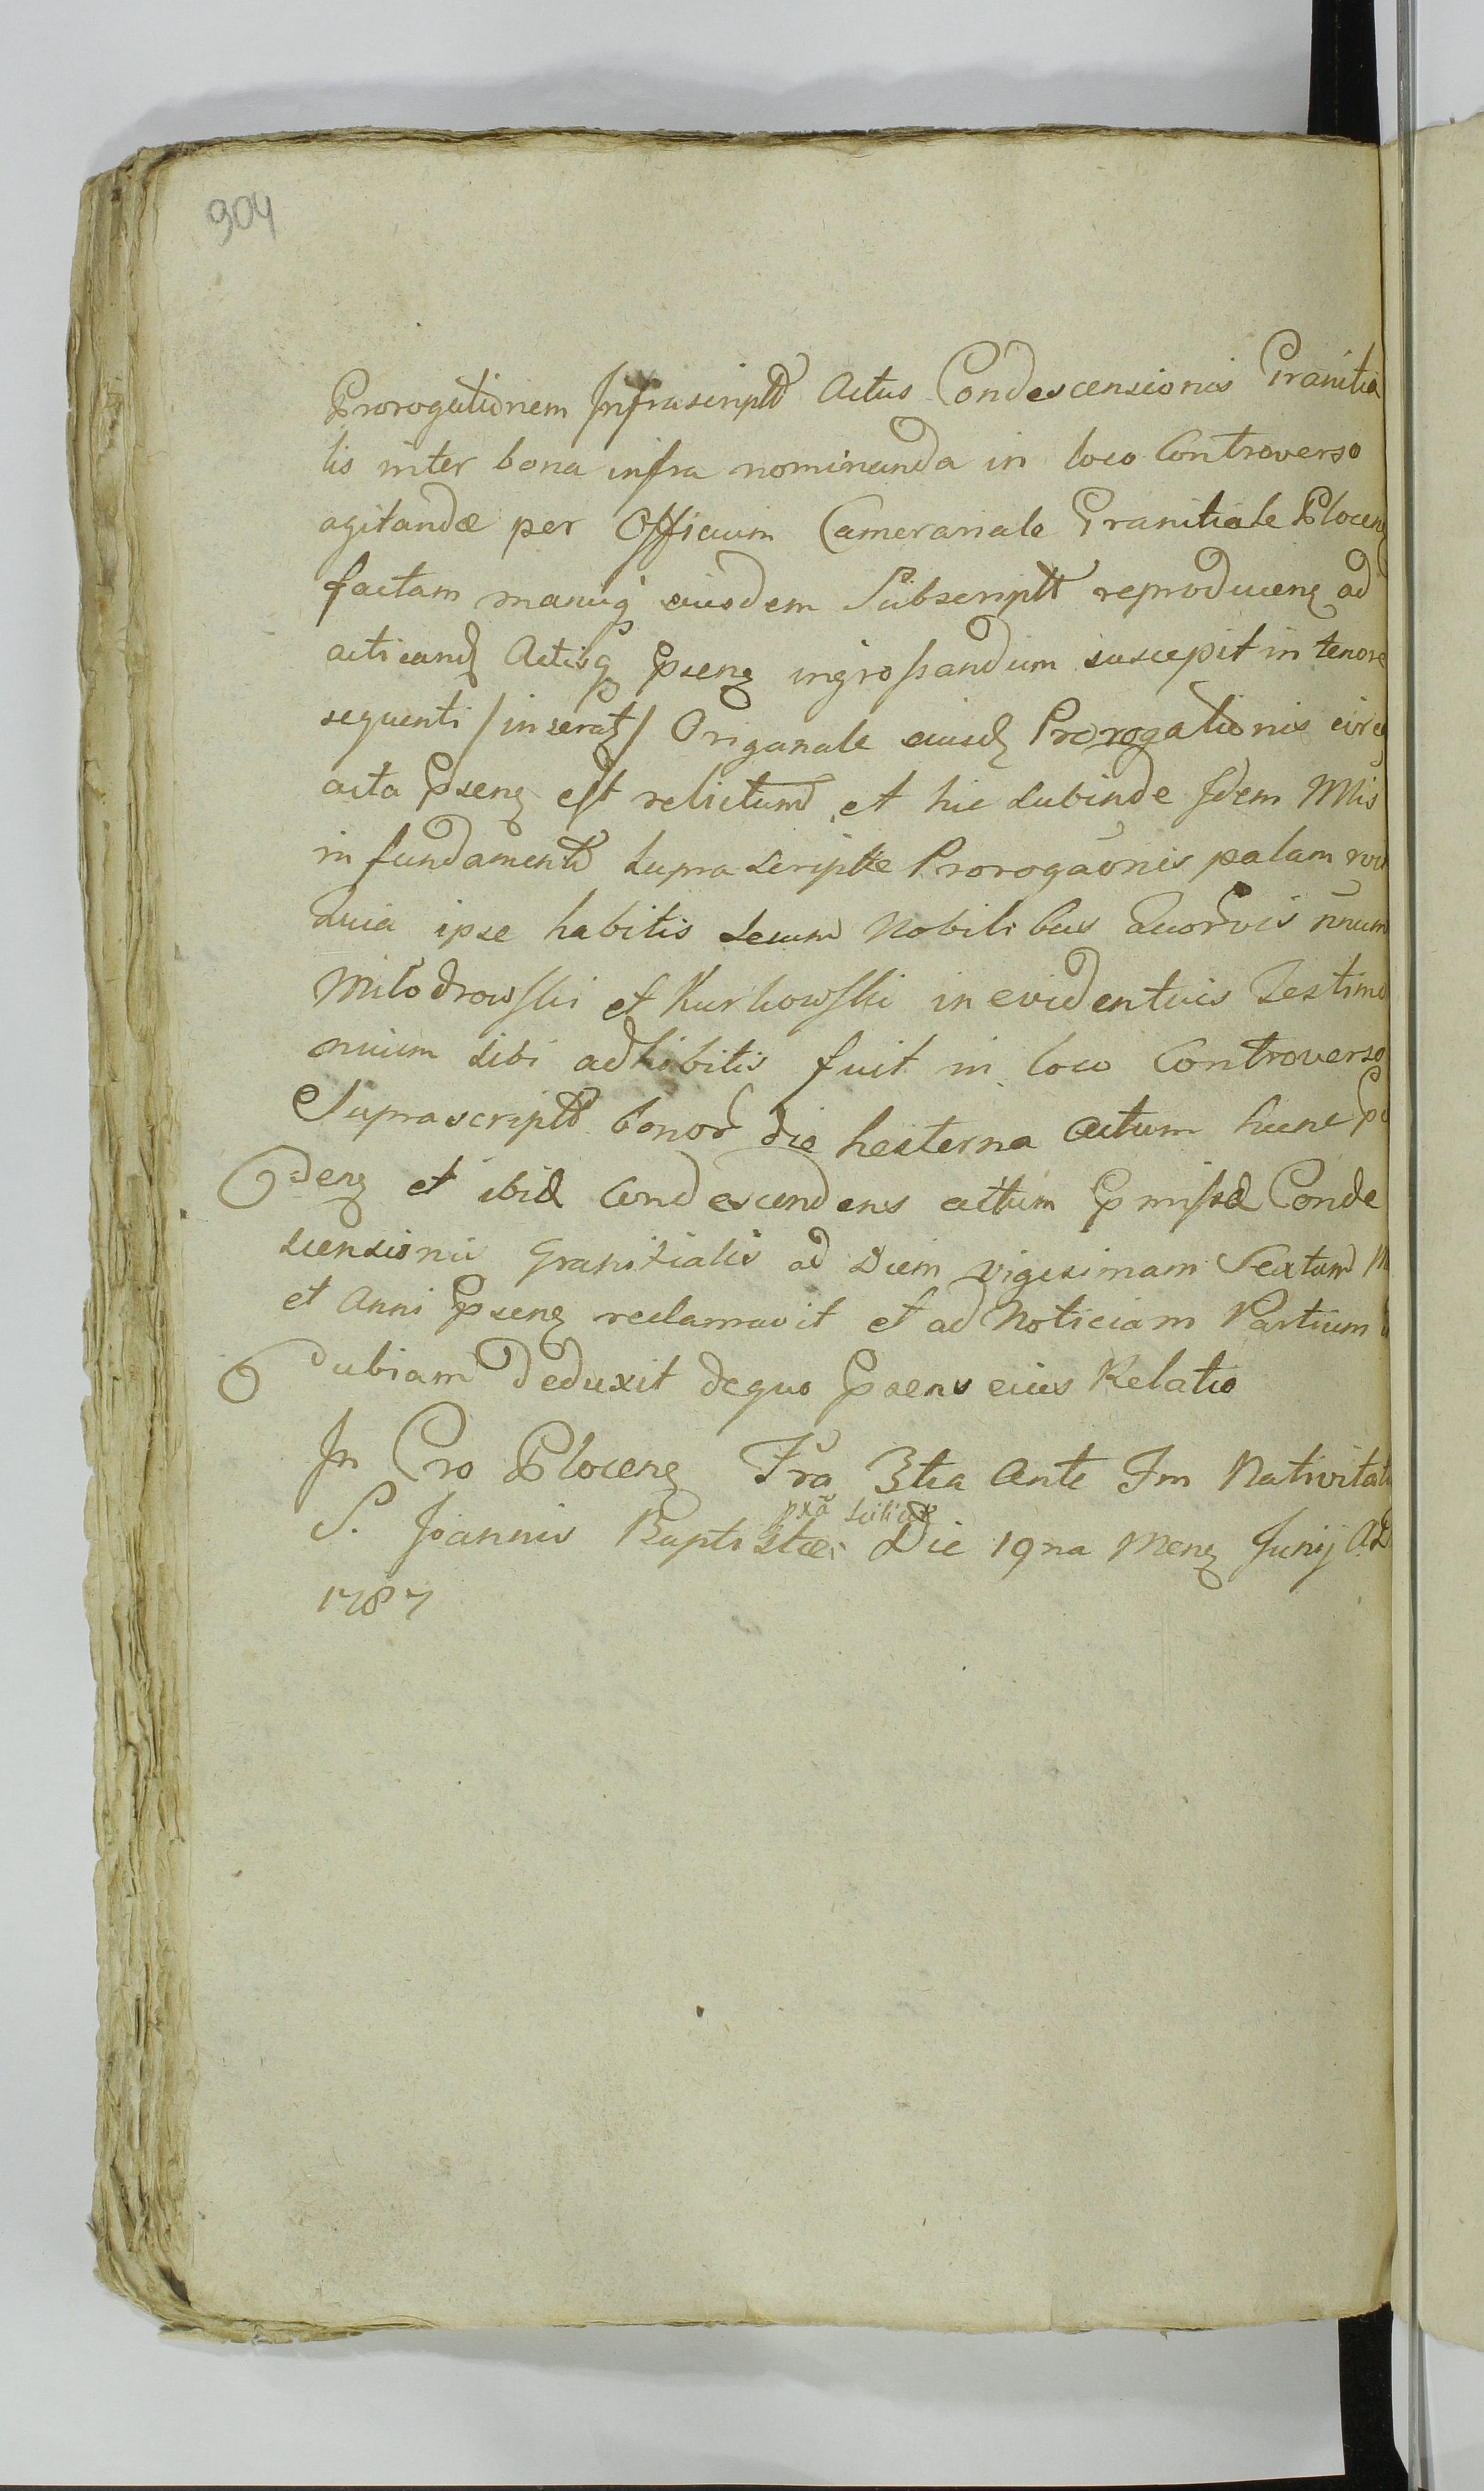 904
Prorogationem Infrascriptt Actus Condescensionis Granitia
lis inter bona infra nominanda in loco Controverso
agitandæ per Officium Camerariale Granitiale Plocen
factam manuq eiusdem Subscriptt reproducens ad
acticand Actisq Psens ingrossandum suscepit in tenore
sequenti /inserat/ Origanale eiusd Prorogationis circa
acta Psens est relictum et hic subinde Idem Mis
in fundamento supra scriptte Prorogaōnis palam
quia ipse habitis secum Nobilibus quorvis
Miłodrowski et Kurkowski in evidentius Testimo
nium sibi adhibitis fuit in loco Controverso
Suprascriptt bonor die hesterna actum hunc
dens et ibid condescendens actum Pmissæ Conde
scensionis Granitialis ad Diem vigesimam Sextam M
et Anni Psens reclamavit et ad Noticiam Partium
dubiam deduxit dequo Psens eius Relatio
In Cro Plocens Fra 3tia Ante Fm Nativitat
pxa scilicet
S. Joannis Baptistæ Die 19na Mens Junij AD
1787